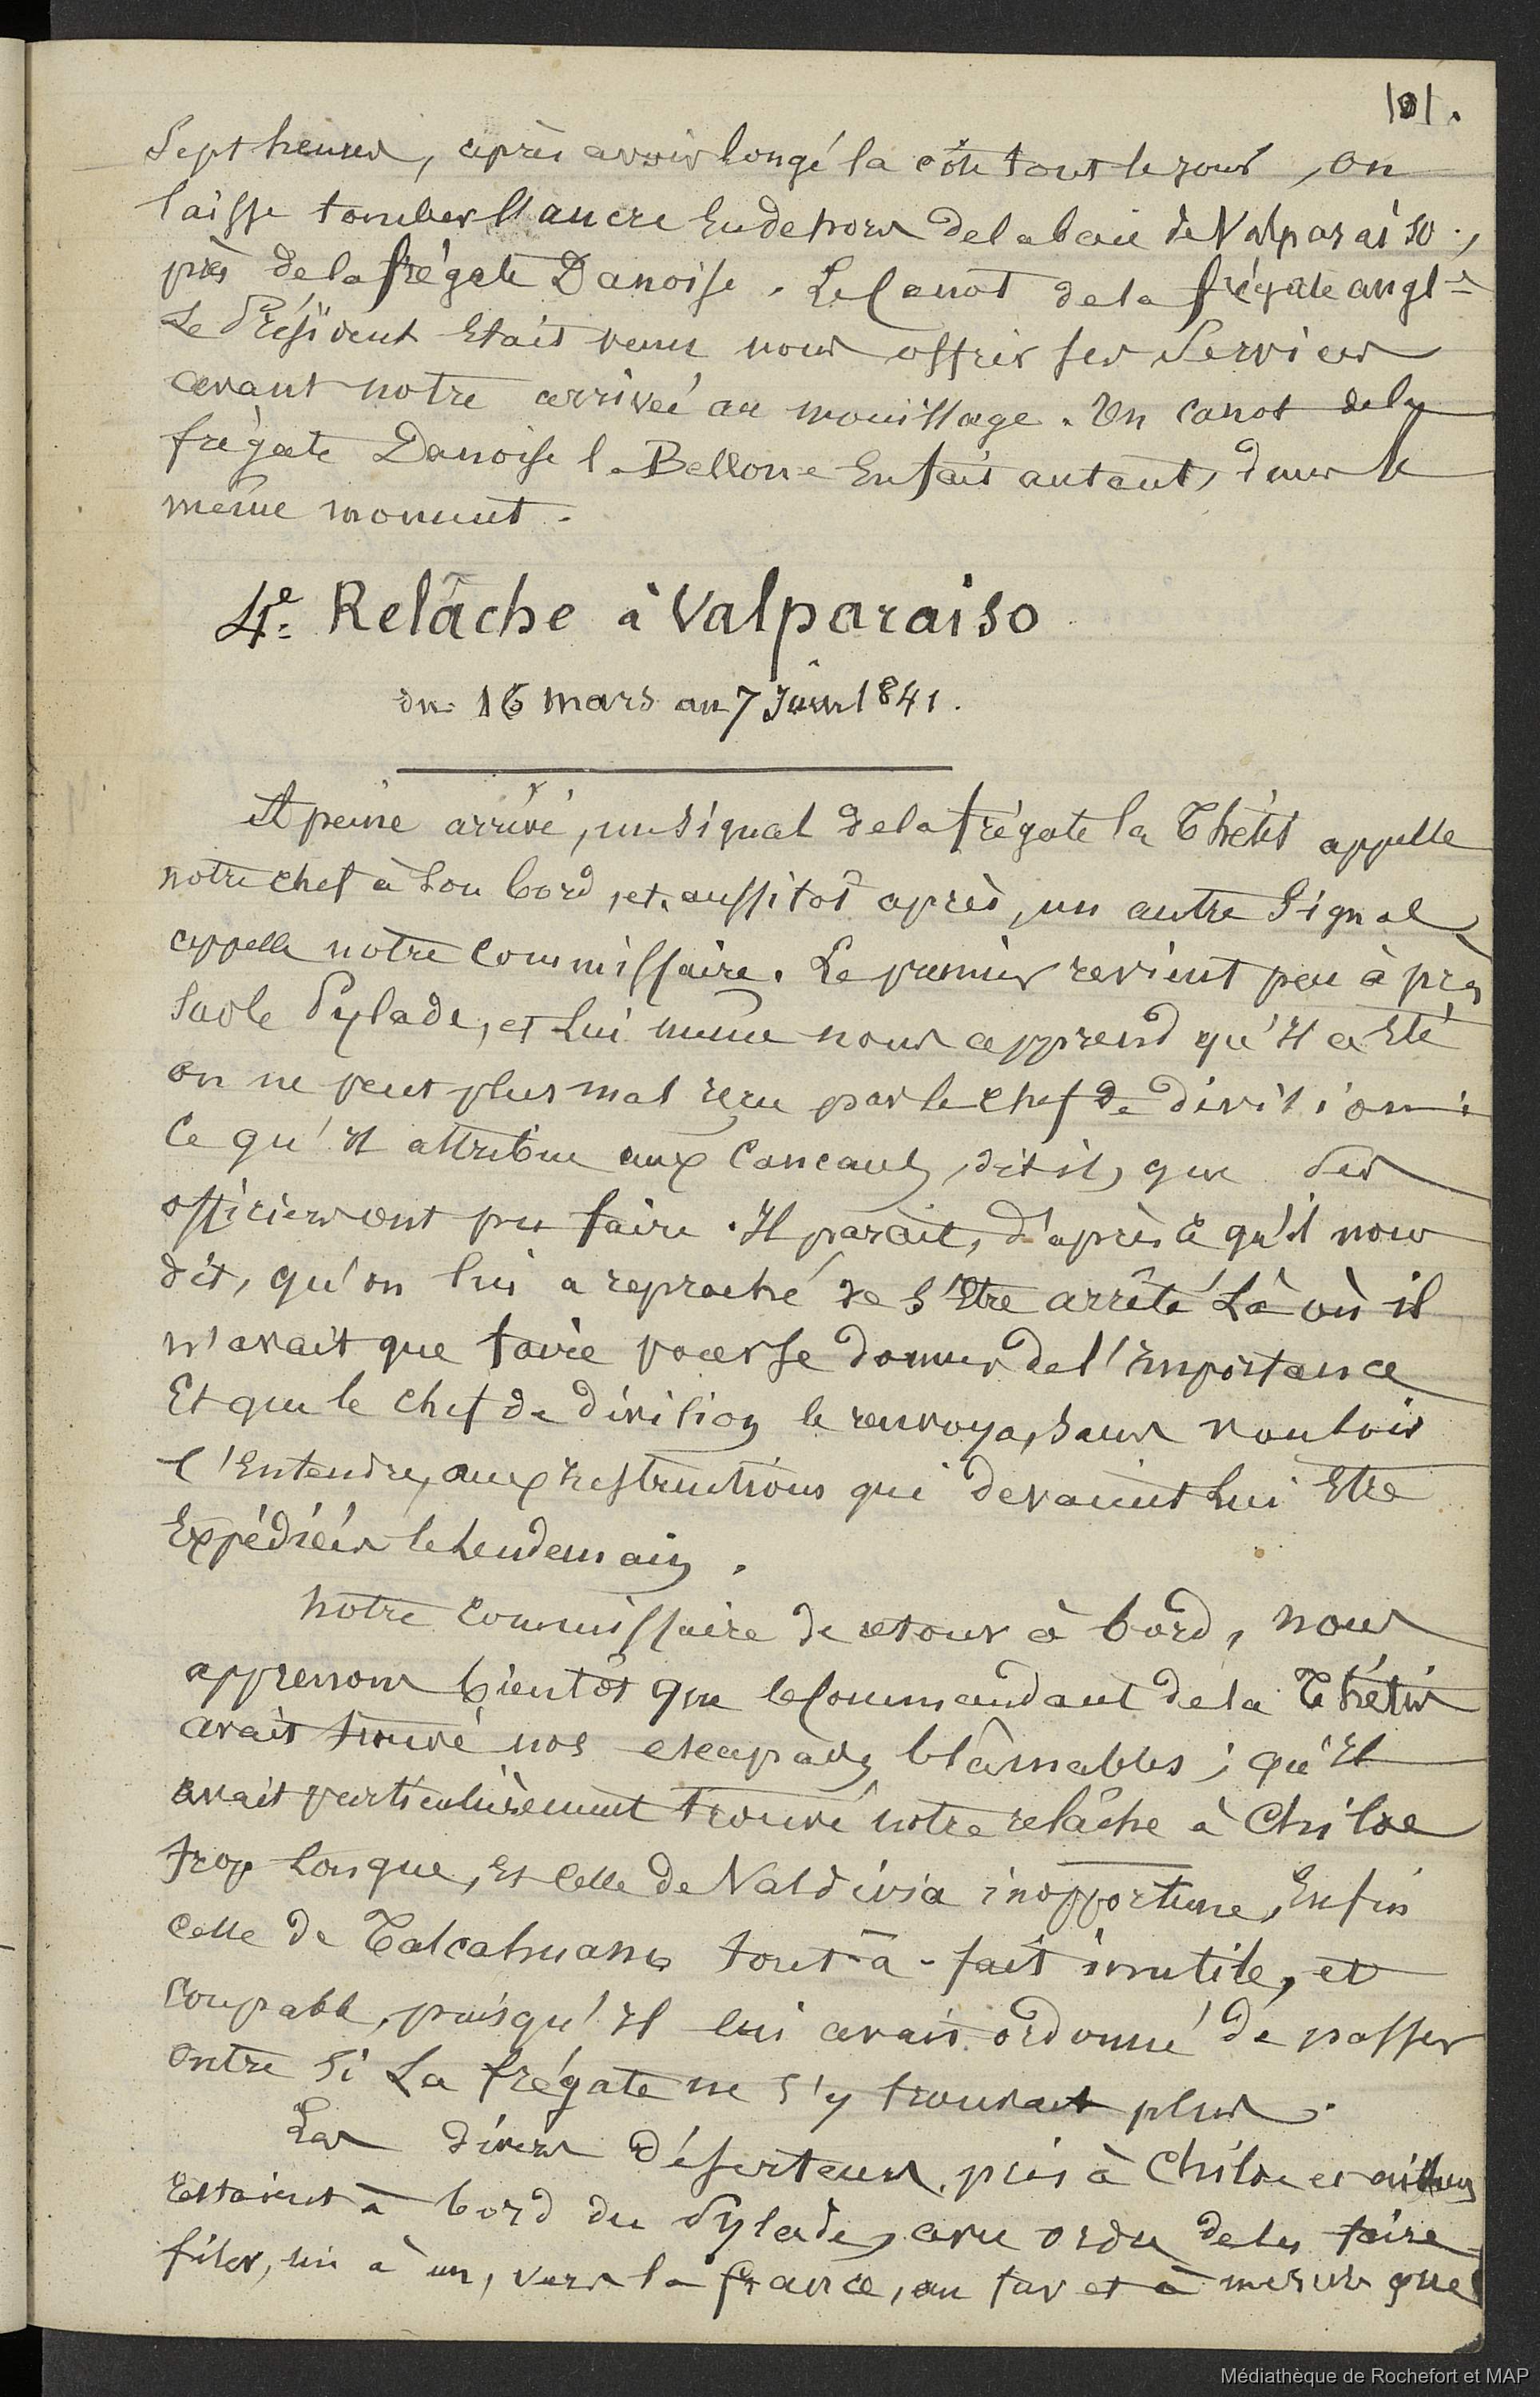 101.
Sept heures, après avoir longé la côte tout le jour, on
laisse tomber l'ancre en dehors de la baie de Valparaiso.,
près de la frégate Danoise. Le Canot de la frégate angl.se
Le Président était venu nous offrir ses Services
avant notre arrivée au mouillage. Un canot de la
frégate Danoise la Bellone en fait autant, dans le
même moment.
4.e Relâche à Valparaiso
du 16 mars au 7 Juin 1841.
A peine arrivé, un signal de la frégate la Thétis appelle
notre chef à son bord, et aussitôt après, un autre Signal
appelle notre Commissaire. Le premier revient peu après
sur le Pylade, et lui même nous apprend qu'il a été
on ne peut plus mal reçu par le chef de division:
Ce qu'il attribue aux Cancans, dit il, que ses
officiers ont pu faire. Il parait, d'après ce qu'il nous
dit, qu'on lui a reproché de s'être arrêté là où il
n'avait que faire pour se donner de l'importance
Et que le chef de division le renvoya, sans vouloir
l'entendre, aux instructions qui devaient lui être
Expédiées le lendemain.
Notre Commissaire de retour à bord, nous
apprenons bientôt que le Commandant de la Thétis
avait trouvé nos escapades blâmables; qu'il
avait particulièrement trouvé notre relâche à Chiloe
trop longue, et celle de Valdivia inopportune, Enfin
celle de Talcahuano tout-à-fait inutile, et
coupable, puisqu'il lui avait ordonné de passer
outre si La frégate ne s'y trouvait plus.
Les divers déserteurs, pris à Chiloe et ailleurs
restaient à bord du Pylade, avec ordre de les faire
filer, un à un, vers la france, au fur et à mesure que
Médiathèque de Rochefort et MAP